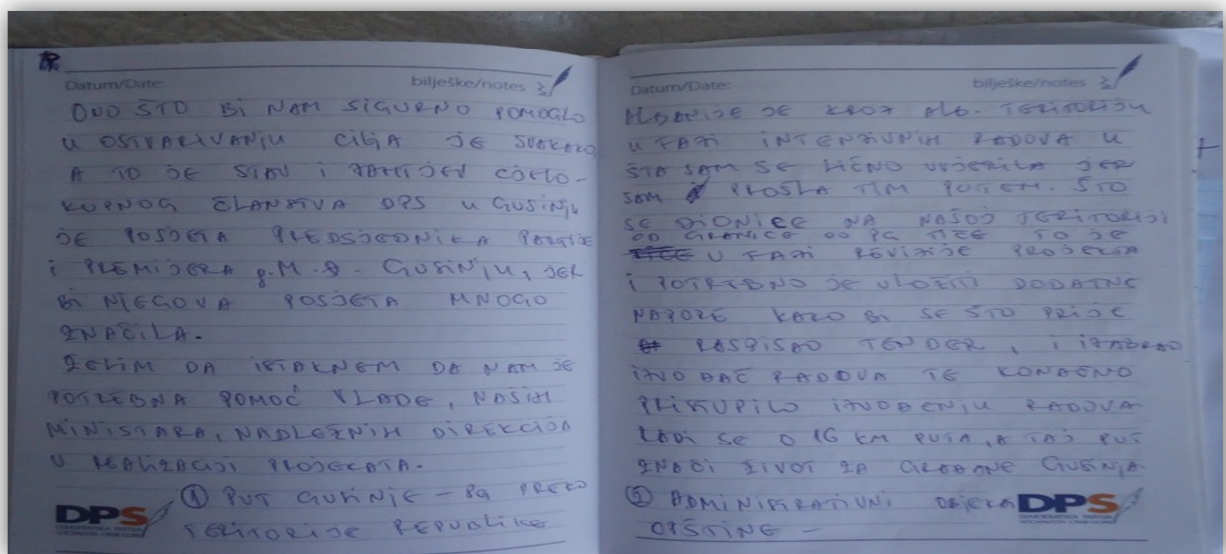 Datum/Date: bilješke/notes
OVO ŠTO BI NAM SIGURNO POMOGLO
U OSTVARIVANJU CILJA JE SVAKAKO
A TO JE STAV I ZAHTJEV CJELO-
KUPNOG ČLANSTVA DPS U GUSINJU
JE POSJETA PREDSJEDNIKA PARTIJE
I PREMIJERA g. M. Đ. GUSINJU, JER
BI NJEGOVA POSJETA MNOGO
ZNAČILA.
ŽELIM DA ISTAKNEM DA NAM JE
POTREBNA POMOĆ VLADE, NAŠIH
MINISTARA, NADLEŽNIH DIREKCIJA
U REALIZACIJI PROJEKATA.
① PUT GUSINJE - PG PREKO
TERITORIJE REPUBLIKE
DPS
DEMOKRATSKA PARTIJA
SOCIJALISTA CRNE GORE
Datum/Date: bilješke/notes
ALBANIJE JE KROZ ALB. TERITORIJU
U FAZI INTENZIVNIH RADOVA U
ŠTA SAM SE LIČNO UVJERILA JER
SAM PROŠLA TIM PUTEM. ŠTO
SE DIONICE NA NAŠOJ TERITORIJI
OD GRANICE DO PG TIČE TO JE
U FAZI REVIZIJE PROJEKTA
I POTREBNO JE ULOŽITI DODATNE
NAPORE KAKO BI SE ŠTO PRIJE
RASPISAO TENDER, I IZABRAO
IZVOĐAČ RADOVA TE KONAČNO
PRISTUPILO IZVOĐENJU RADOVA
RADI SE O 16 KM PUTA, A TAJ PUT
ZNAČI ŽIVOT ZA GRAĐANE GUSINJA.
② ADMINISTRATIVNI OBJEKA
OPŠTINE -
DPS
DEMOKRATSKA PARTIJA
SOCIJALISTA CRNE GORE